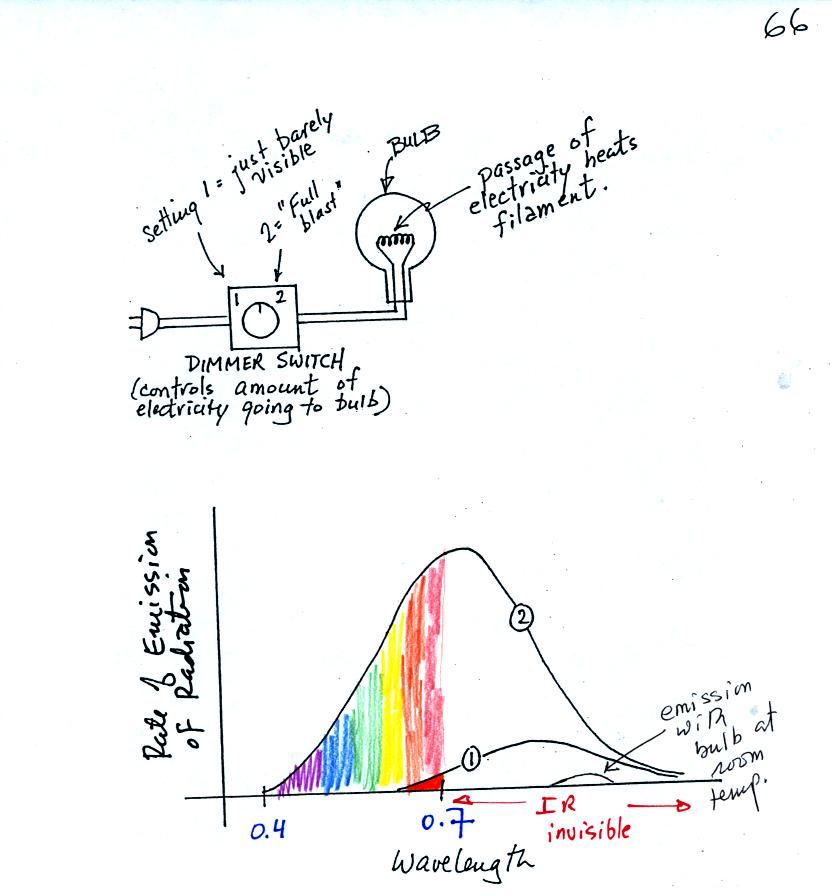 66
Setting 1 = just barely
visible
2 = "Full
blast"
BULB
passage of
electricity heats
filament.
1 2
DIMMER SWITCH
(controls amount of
electricity going to bulb)
Rate of Emission
of Radiation
2
1
emission
with
bulb at
room
temp.
0.4
0.7
IR
invisible
Wavelength